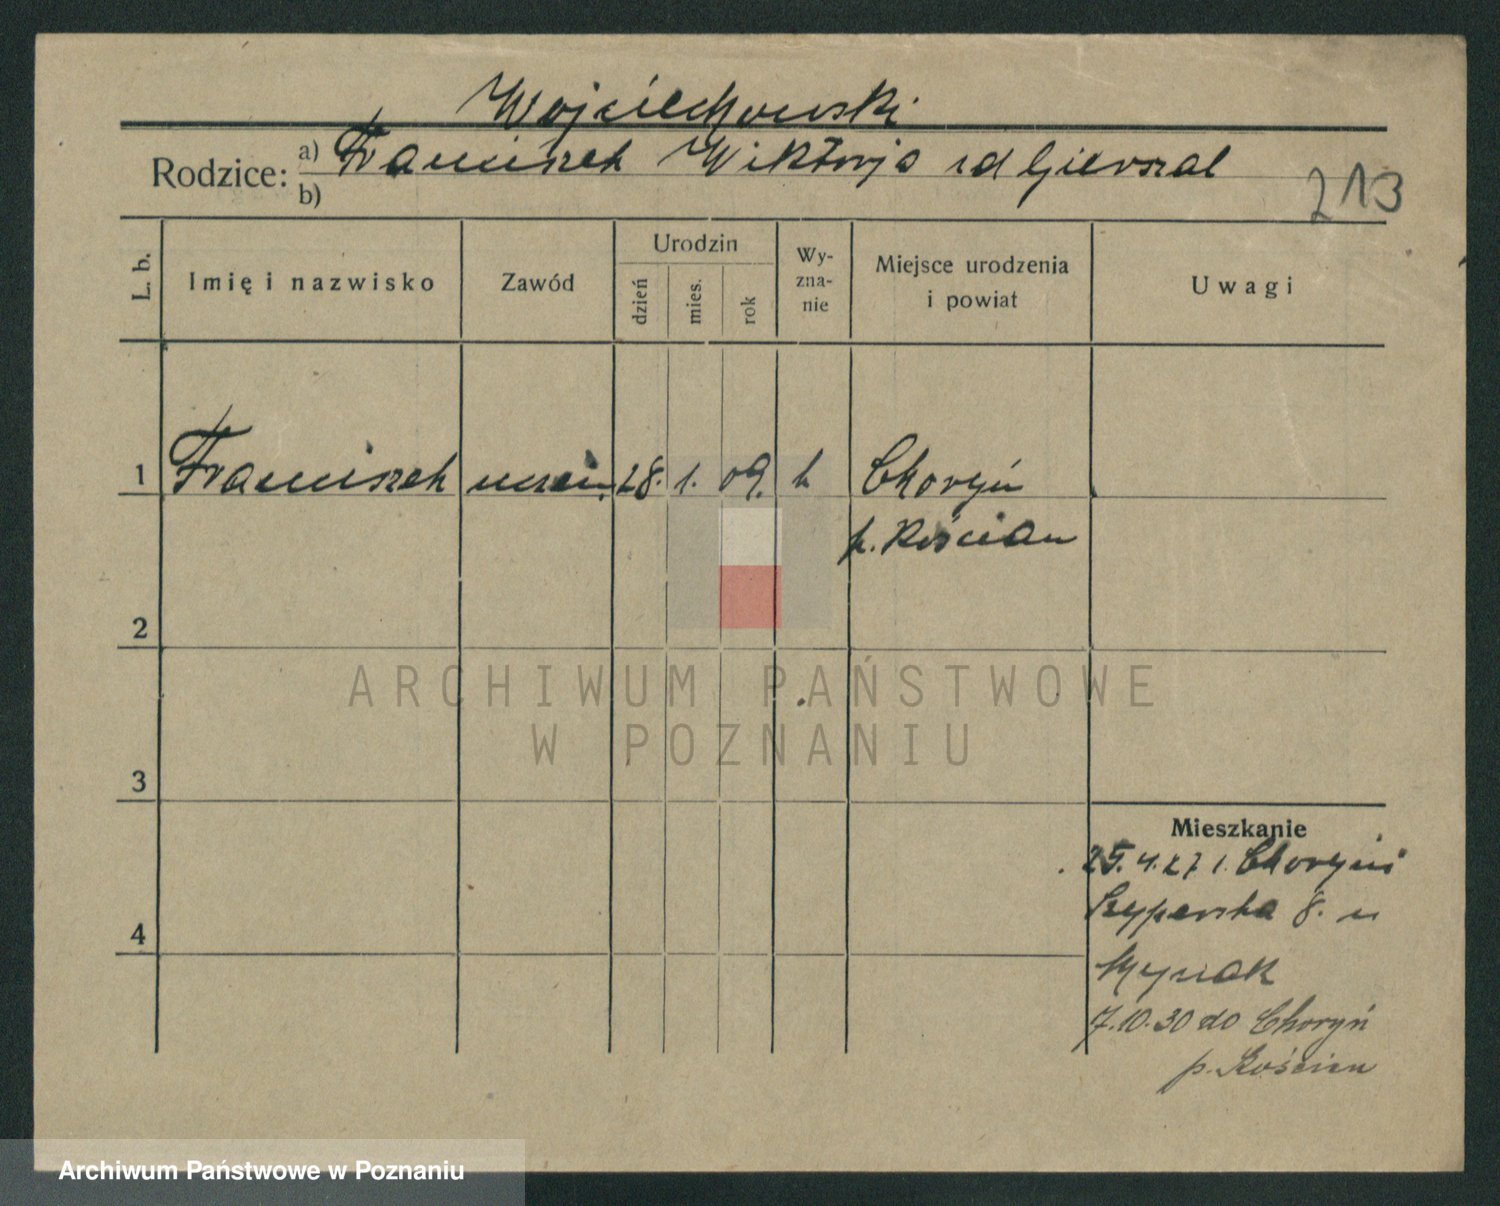 Wojciechowski
Rodzice: a) Franciszek Wiktorja zd Gierszal
b)
213
L. b.
Imię i nazwisko
Zawód
Urodzin
dzień
mies.
rok
Wy-
zna-
nie
Miejsce urodzenia
i powiat
Uwagi
1 Franciszek uczeń 28. 1. 09. k Choryń
p. Kościan
2
3
4
Mieszkanie
25.4.27 z Choryni
Szyperska 8. u
7.10.30 do Choryń
p. Kościan
ARCHIWUM PAŃSTWOWE
W POZNANIU
Archiwum Państwowe w Poznaniu